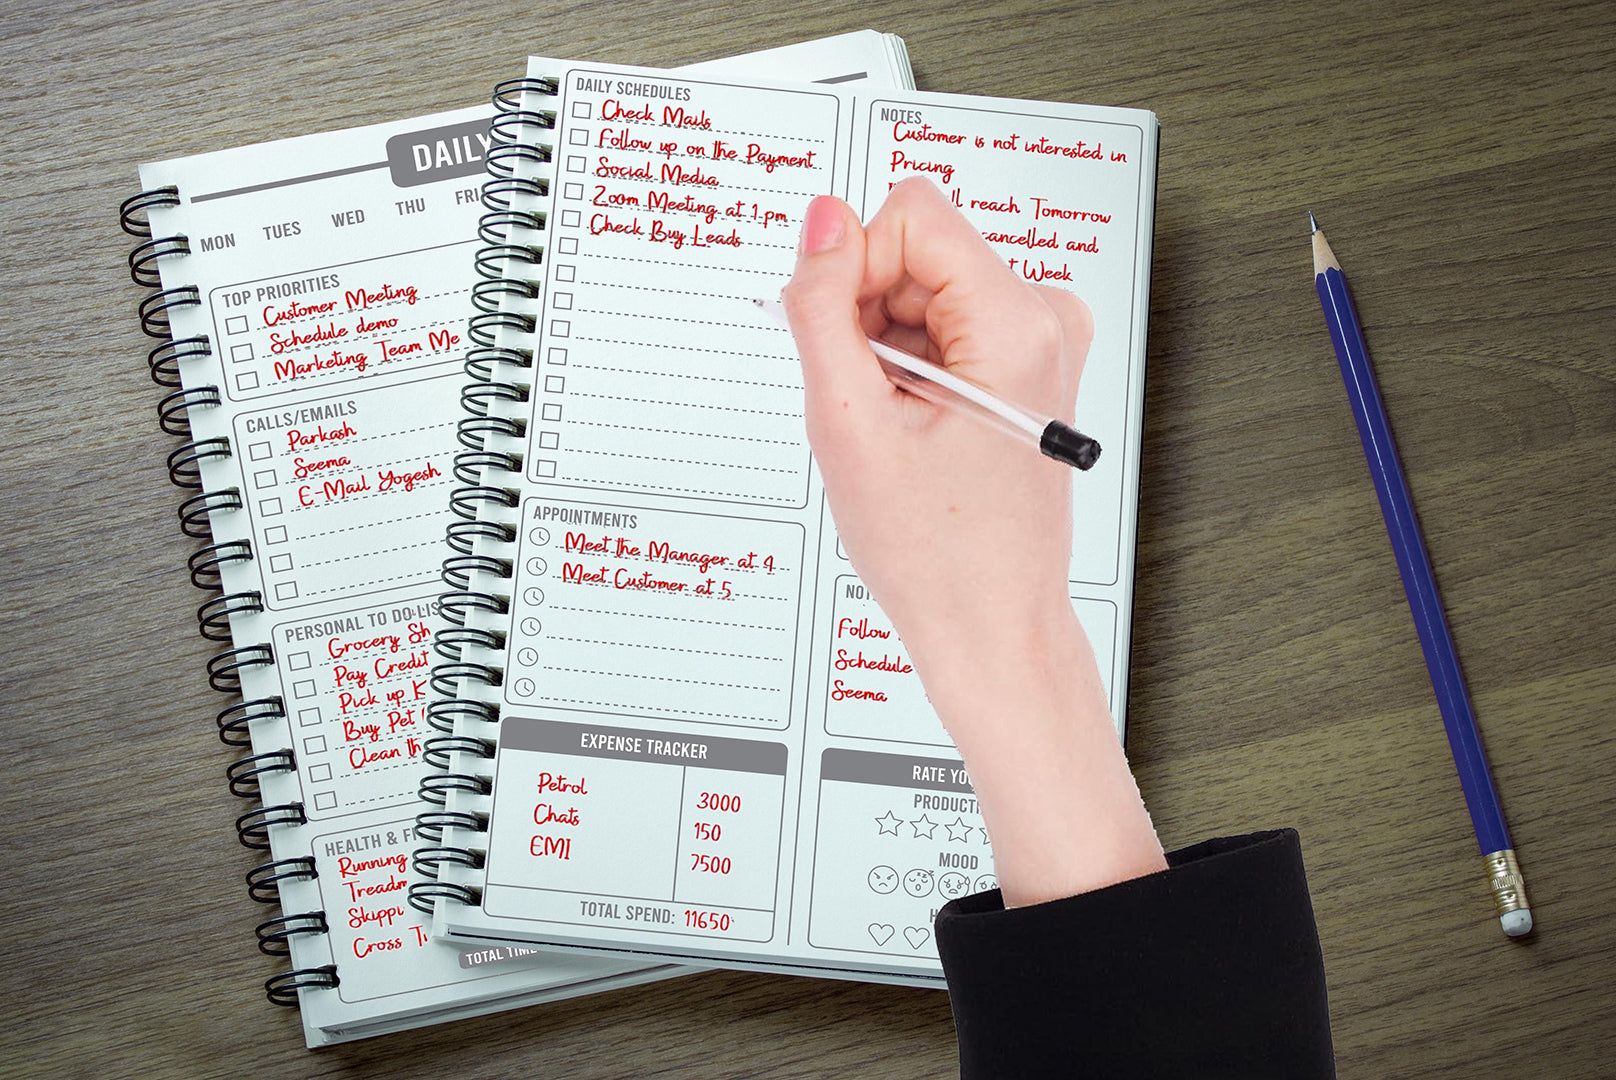 DAILY
MON TUES WED THU FRI
TOP PRIORITIES
Customer Meeting
Schedule demo
Marketing Team Me
CALLS/EMAILS
Parkash
Seema
E-Mail Yogesh
PERSONAL TO DO LIS
Grocery Sh
Pay Credit
Pick up K
Buy Pet
Clean th
HEALTH & FI
Running
Treadm
Skippi
Cross Tr
TOTAL TIME
DAILY SCHEDULES
Check Mails
Follow up on the Payment
Social Media
Zoom Meeting at 1 pm
Check Buy Leads
APPOINTMENTS
Meet the Manager at 4
Meet Customer at 5
EXPENSE TRACKER
Petrol 3000
Chats 150
EMI 7500
TOTAL SPEND: 11650
NOTES
Customer is not interested in
Pricing
ll reach Tomorrow
cancelled and
t Week
NOT
Follow
Schedule
Seema
RATE YO
PRODUCTI
MOOD
H